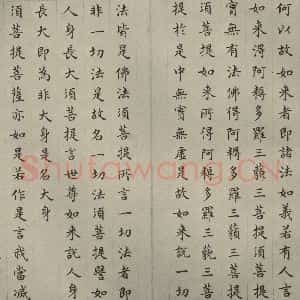 何以故如來者即諸法如義若有人言
如來得阿耨多羅三藐三菩提須菩提
實無有法佛得阿耨多羅三藐三菩提
須菩提如來所得阿耨多羅三藐三菩
提於是中無實無虛是故如來說一切
法皆是佛法須菩提所言一切法者即
非一切法是故名一切法須菩提譬如
人身長大須菩提言世尊如來說人身
長大即為非大身是名大身
須菩提菩薩亦如是若作是言我當滅
Shufawang.CN